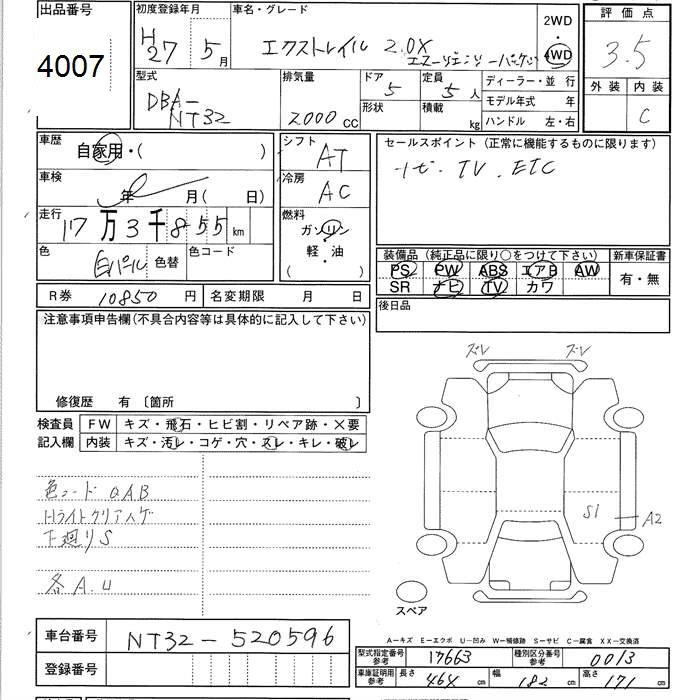 出品番号
4007
初度登録年月
H27年 5月
車名・グレード
エクストレイル 2.0X
エマージェンシーパッケージ
2WD
・
4WD
評価点
3.5
外装 内装
C
型式
DBA-
NT32
排気量
2000 CC
ドア
5
形状
定員
5人
積載
kg
ディーラー・並行
モデル年式 年
ハンドル 左・右
車歴
自家用・( )
車検
年 月( 日)
走行
17万3千855km
色
白パール
色替
色コード
シフト
AT
冷房
AC
燃料
ガソリン
軽・油
( )
セールスポイント(正常に機能するものに限ります)
ナビ. TV. ETC
装備品(純正品に限り○をつけて下さい)
PS PW ABS エアB AW
SR ナビ TV カワ
新車保証書
有・無
R券 10850円
名変期限 月 日
後日品
注意事項申告欄(不具合内容等は具体的に記入して下さい)
修復歴 有 〔箇所 〕
検査員
記入欄
FW キズ・飛石・ヒビ割・リペア跡・×要
内装 キズ・汚レ・コゲ・穴・スレ・キレ・破レ
色コード QAB
Hライトクリアハゲ
下廻りS
各A.U
ズレ ズレ
S1
A2
スペア
車台番号 NT32-520596
登録番号
A－キズ E－エクボ U－凹み W－補修跡 S－サビ C－腐食 XX－交換済
型式指定番号
参考
17663
種別区分番号
参考
0013
車庫証明用
参考
長さ 464 cm 幅 182 cm 高さ 171 cm